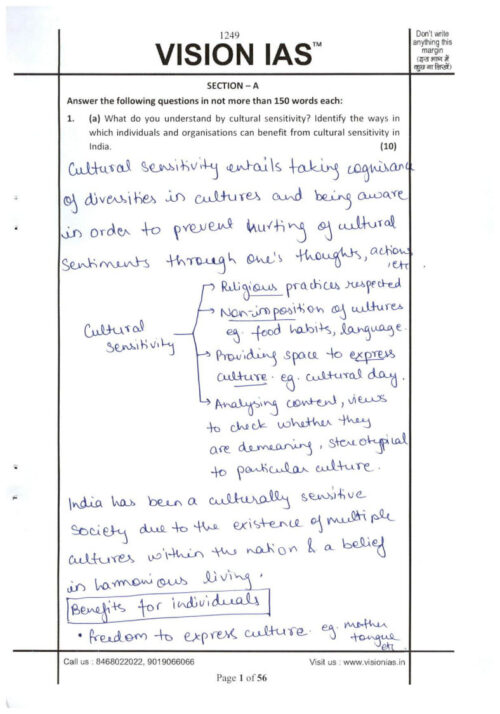 1249
VISION IAS™
Don't write
anything this
margin
(इस भाग में
कुछ ना लिखें)
SECTION – A
Answer the following questions in not more than 150 words each:
1. (a) What do you understand by cultural sensitivity? Identify the ways in
which individuals and organisations can benefit from cultural sensitivity in
India. (10)
Cultural sensitivity entails taking cognisance
of diversities in cultures and being aware
in order to prevent hurting of cultural
sentiments through one's thoughts, actions
, etc
Cultural
Sensitivity
→ Religious practices respected
→ Non-imposition of cultures
eg. food habits, language.
→ Providing space to express
culture. eg. cultural day.
→ Analysing content, views
to check whether they
are demeaning, stereotypical
to particular culture.
India has been a culturally sensitive
society due to the existence of multiple
cultures within the nation & a belief
in harmonious living.
Benefits for individuals
• freedom to express culture. eg. mother
tongue
etc
Call us : 8468022022, 9019066066
Visit us : www.visionias.in
Page 1 of 56